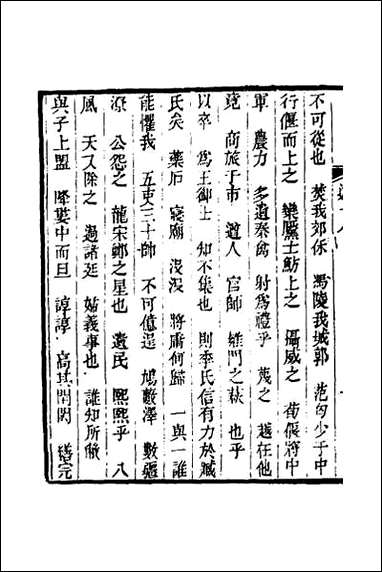 不可從也 焚我郊保 馮陵我城郭 范匄少于中
行偃而上之 欒黶士魴上之 偪威之 荀偃將中
軍 農力 多遺秦禽 射爲禮乎 蔑之 越在他
竟 商旅于市 遒人 官師 雍門之萩 也乎
以卒 爲王御士 知不集也 則季氏信有力於臧
氏矣 藥石 寢廟 沒沒 將庸何歸 一與一誰
能懼我 五吏三十帥 不可億逞 鳩藪澤 數疆
潦 公怨之 龍宋鄭之星也 遺民 熙熙乎 八
風 天又除之 過諸廷 姑義事也 誰知所敝
與子上盟 降婁中而旦 諄諄 高其閈閎 繕完